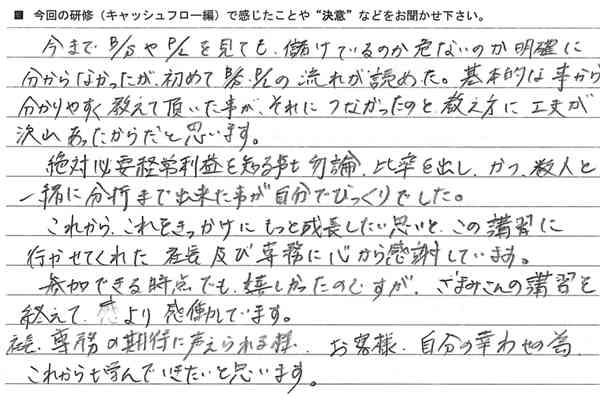 ■ 今回の研修（キャッシュフロー編）で感じたことや“決意”などをお聞かせ下さい。
今まで B/SやP/Lを見ても、儲けているのか危ないのか明確に
分からなかったが、初めてB/S・P/Lの流れが読めた。基本的な事から
分かりやすく教えて頂いた事が、それにつながったのと、教え方に工夫が
沢山あったからだと思います。
絶対必要経常利益を知る事も勿論、比率を出し、かつ、数人と
一緒に分析まで出来た事が自分でびっくりでした。
これから、これをきっかけにもっと成長したい思いと、この講習に
行かせてくれた 社長及び専務に心から感謝しています。
参加できる時点でも、嬉しかったのですが、ざまみさんの講習を
終えて、より感動しています。
社長、専務の期待に声えられる様、お客様、自分の幸わせの為、
これからも学んでいきたいと思います。